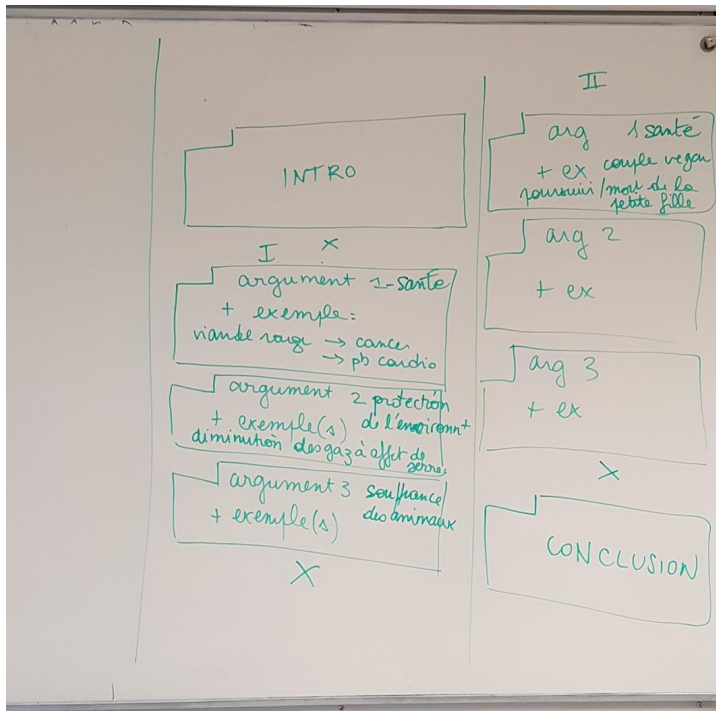 INTRO
I
×
argument 1-santé
+ exemple:
viande rouge → cancer
→ pb cardio
argument 2 protection
+ exemple(s) de l'environnt
diminution des gaz à effet de
serre
argument 3 souffrance
+ exemple(s) des animaux
×
II
arg 1 santé
+ ex couple vegan
poursuivi / mort de la
petite fille
arg 2
+ ex
arg 3
+ ex
×
CONCLUSION